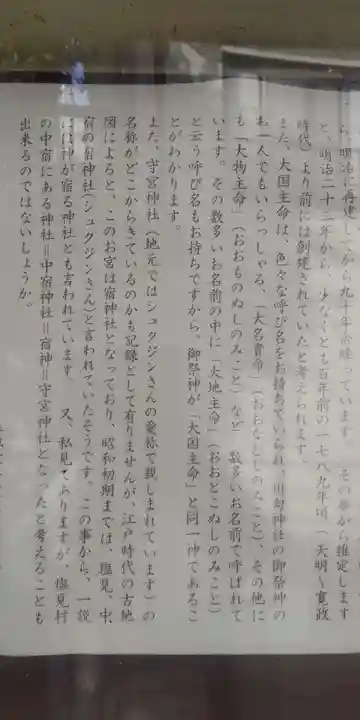 ら、明治に再建してから九十年余経っています。その事から推定します
と、明治二十二年から、少なくとも百年前の一七八九年頃(天明〜寛政
時代)より前には創建されていたと考えられます
また、大国主命は、色々な呼び名をお持ちでいられ、川匂神社の御祭神の
お一人でもいらっしゃる、「大名貴命」(おおなむちのみこと)、その他に
も「大物主命」(おおものぬしのみこと)など 数多いお名前で呼ばれて
います。その数多いお名前の中に「大地主命」(おおとこぬしのみこと)
と云う呼び名もお持ちですから、御祭神が「大国主命」と同一神であるこ
とがわかります。
また、守宮神社(地元ではシュクジンさんの愛称で親しまれています)の
名称がどこからきているのかも記録として有りませんが、江戸時代の古地
図によると、このお宮は宿神社となっており、昭和初期までは、塩見、中
宿の宿神社(シュクジンさん)と言われていたそうです。この事から、一説
には神が宿る神社とも言われています 又、私見でありますが、塩見村
の中宿にある神社=中宿神社=宿神=守宮神社となったと考えることも
出来るのではないでしょうか。